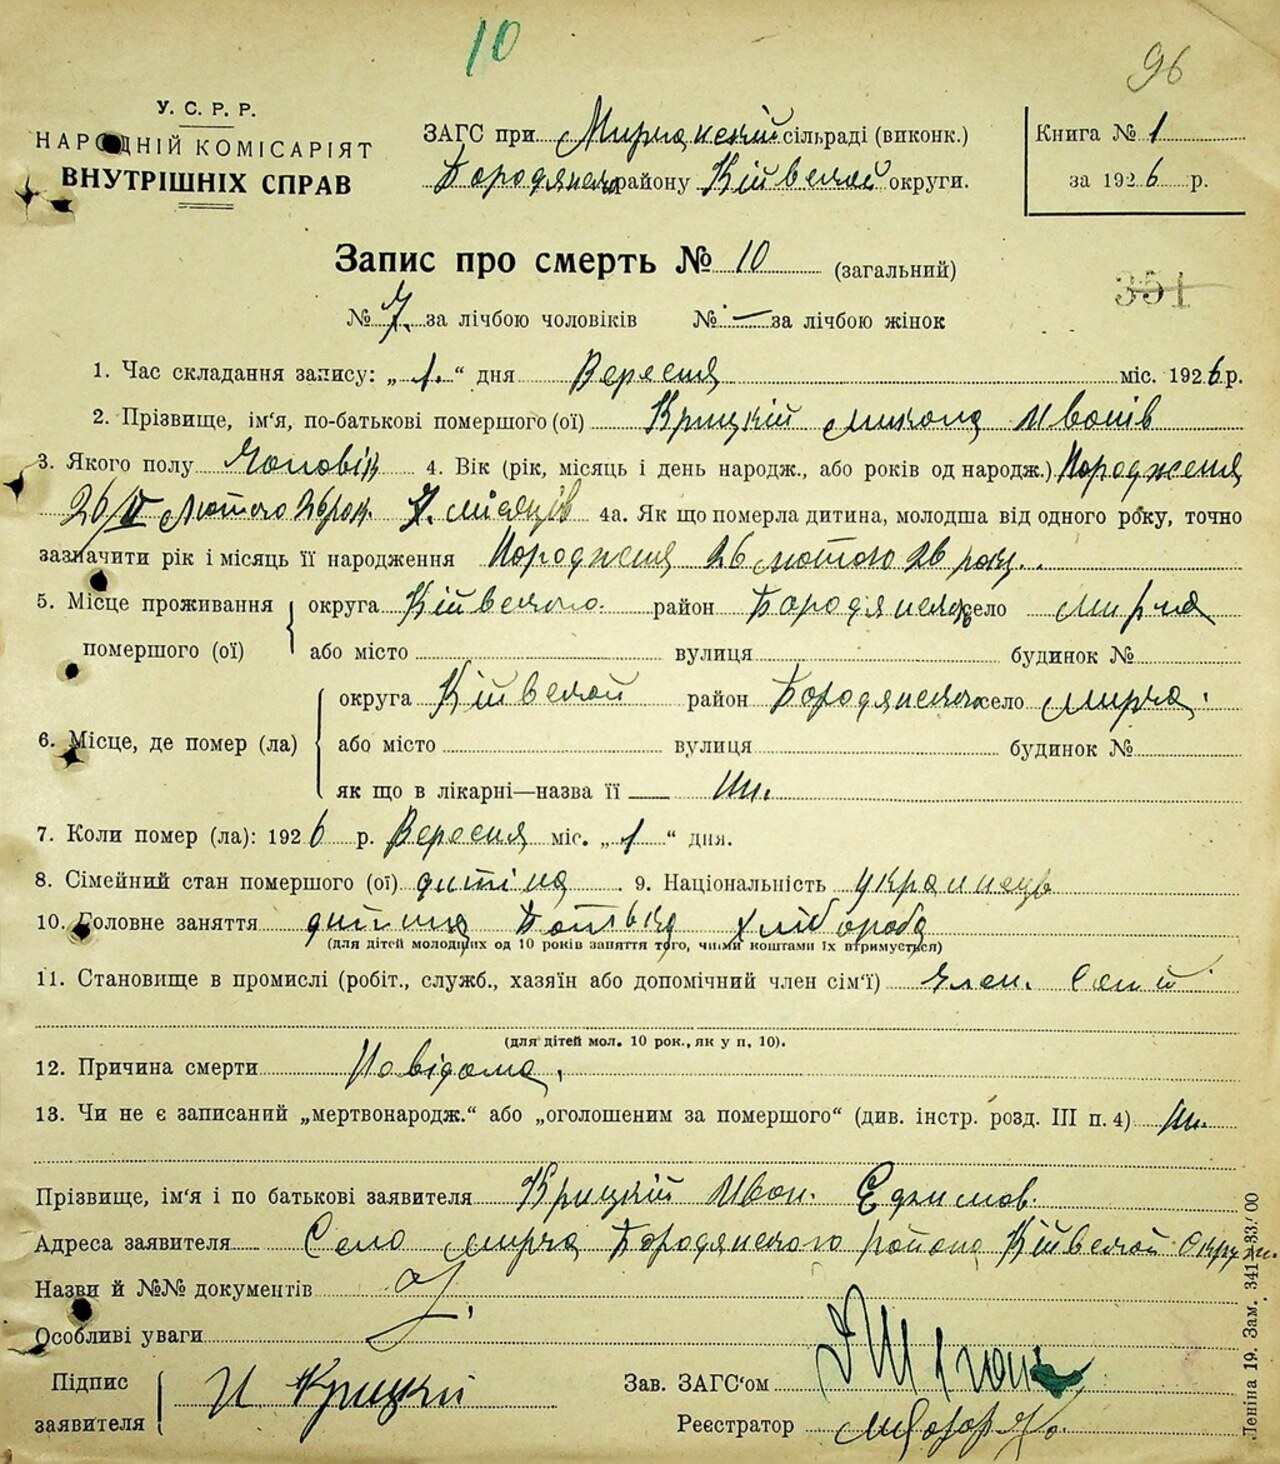 10
96
У. С. Р. Р.
НАРОДНІЙ КОМІСАРІЯТ
ВНУТРІШНІХ СПРАВ
ЗАГС при Мирчакській сільраді (виконк.)
Бородянського району Кіівської округи.
Книга № 1
за 1926 р.
Запис про смерть № 10 (загальний)
351
№ 7. за лічбою чоловіків № — за лічбою жінок
1. Час складання запису: „1.“ дня Вересня міс. 1926 р.
2. Прізвище, ім'я, по-батькові помершого (ої) Крицкій Микола Иванів
3. Якого полу Чоловік 4. Вік (рік, місяць і день народж., або років од народж.) Народженя
26/II Лютого 26 рок. 7. місяців 4а. Як що померла дитина, молодша від одного року, точно
зазначити рік і місяць її народження Народженя 26 лютого 26 року..
5. Місце проживання помершого (ої) округа Кіівського район Бородянского село Мирча
або місто вулиця будинок №
6. Місце, де помер (ла) округа Кіівской район Бородянского село Мирча.
або місто вулиця будинок №
як що в лікарні—назва її — Ні.
7. Коли помер (ла): 1926 р. Вересня міс. „1“ дня.
8. Сімейний стан помершого (ої) дитіна 9. Національність Украинець
10. Головне заняття дитина Батька хліборода
(для дітей молодших од 10 років заняття того, чиїми коштами їх втримується)
11. Становище в промислі (робіт., служб., хазяїн або допомічний член сім'ї) Член. Семй
(для дітей мол. 10 рок., як у п. 10).
12. Причина смерти Невідома.
13. Чи не є записаний „мертвонародж.“ або „оголошеним за помершого“ (див. інстр. розд. III п. 4) Ні.
Прізвище, ім'я і по батькові заявителя Крицкій Иван.
Адреса заявителя Село Мирча Бородянского района Кіівской Округи.
Назви й №№ документів
Особливі уваги
Підпис заявителя И Крицкій
Зав. ЗАГС'ом
Реєстратор
Леніна 19. Зам. 341